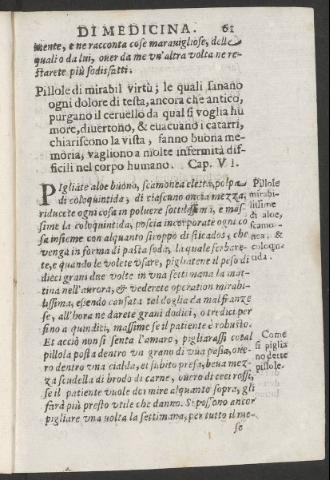 DI MEDICINA. 61
mente, e ne racconta cose marauigliose, delle
quali o da lui, ouer da me vn'altra volta ne re-
starete più sodisfatti.
Pillole di mirabil virtù; le quali sanano
ogni dolore di testa, ancora che antico,
purgano il ceruello da qual si voglia hu
more, diuertono, & euacuano i catarri,
chiariscono la vista, fanno buona me-
moria, vagliono a molte infermità dif-
ficili nel corpo humano. Cap. VI.
PIgliate aloe buono, scamonea eletta, polpa
di coloquintida, di ciascuno oncia mezza,
riducete ogni cosa in poluere sottilissimi, e mas
sime la coloquintida, poscia incorporate ogni co
sa insieme con alquanto siroppo di sticados, che
venga in forma di pasta soda, la quale serbare-
te, e quando le volete vsare, pigliatene il peso di
dieci grani due volte in vna settimana la mat-
tina nell'aurora, & vederete operation mirabi-
lissima, essendo causata tal doglia da mal franze
se, all'hora ne darete grani dodici, o tredici per
fino a quindici, massime se il patiente è robusto.
Et acciò non si senta l'amaro, pigliarassi cotal
pillola posta dentro vn grano di vua passa, oue-
ro dentro vna cialda, et subito presa, beua mez-
za scudella di brodo di carne, ouero di ceci rossi,
se il patiente vuole dormire alquanto sopra, gli
farà più presto vtile che danno. Si possono ancor
pigliare vna volta la settimana, per tutto il me-
se
Pillole
mirabi-
lissime
di aloe,
scamo-
nea, &
coloqui
tida.
Come
si piglia
no dette
pillole.